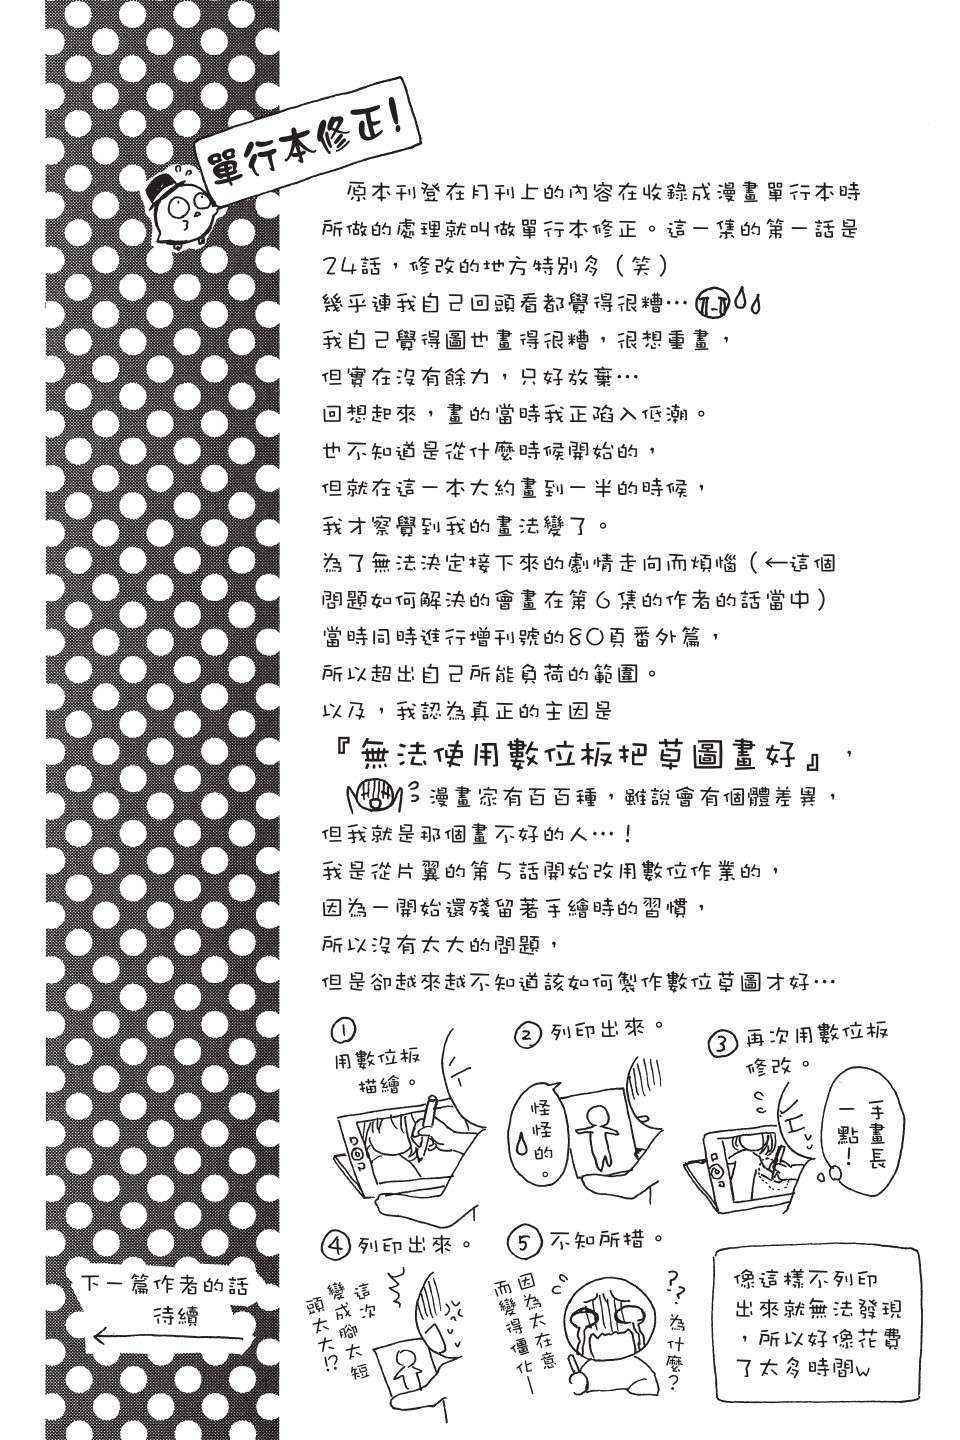 單行本修正!
原本刊登在月刊上的內容在收錄成漫畫單行本時
所做的處理就叫做單行本修正。這一集的第一話是
24話，修改的地方特別多（笑）
幾乎連我自己回頭看都覺得很糟…
我自己覺得圖也畫得很糟，很想重畫，
但實在沒有餘力，只好放棄…
回想起來，畫的當時我正陷入低潮。
也不知道是從什麼時候開始的，
但就在這一本大約畫到一半的時候，
我才察覺到我的畫法變了。
為了無法決定接下來的劇情走向而煩惱（←這個
問題如何解決的會畫在第6集的作者的話當中）
當時同時進行增刊號的80頁番外篇，
所以超出自己所能負荷的範圍。
以及，我認為真正的主因是
『無法使用數位板把草圖畫好』，
漫畫家有百百種，雖說會有個體差異，
但我就是那個畫不好的人…！
我是從片翼的第5話開始改用數位作業的，
因為一開始還殘留著手繪時的習慣，
所以沒有太大的問題，
但是卻越來越不知道該如何製作數位草圖才好…
①
用數位板
描繪。
② 列印出來。
怪怪的。
③ 再次用數位板
修改。
手畫長
一點！
④ 列印出來。
這次
變成腳太短
頭太大!?
⑤ 不知所措。
??為什麼?
因為太在意
而變得僵化—
像這樣不列印
出來就無法發現
，所以好像花費
了太多時間w
下一篇作者的話
待續
←